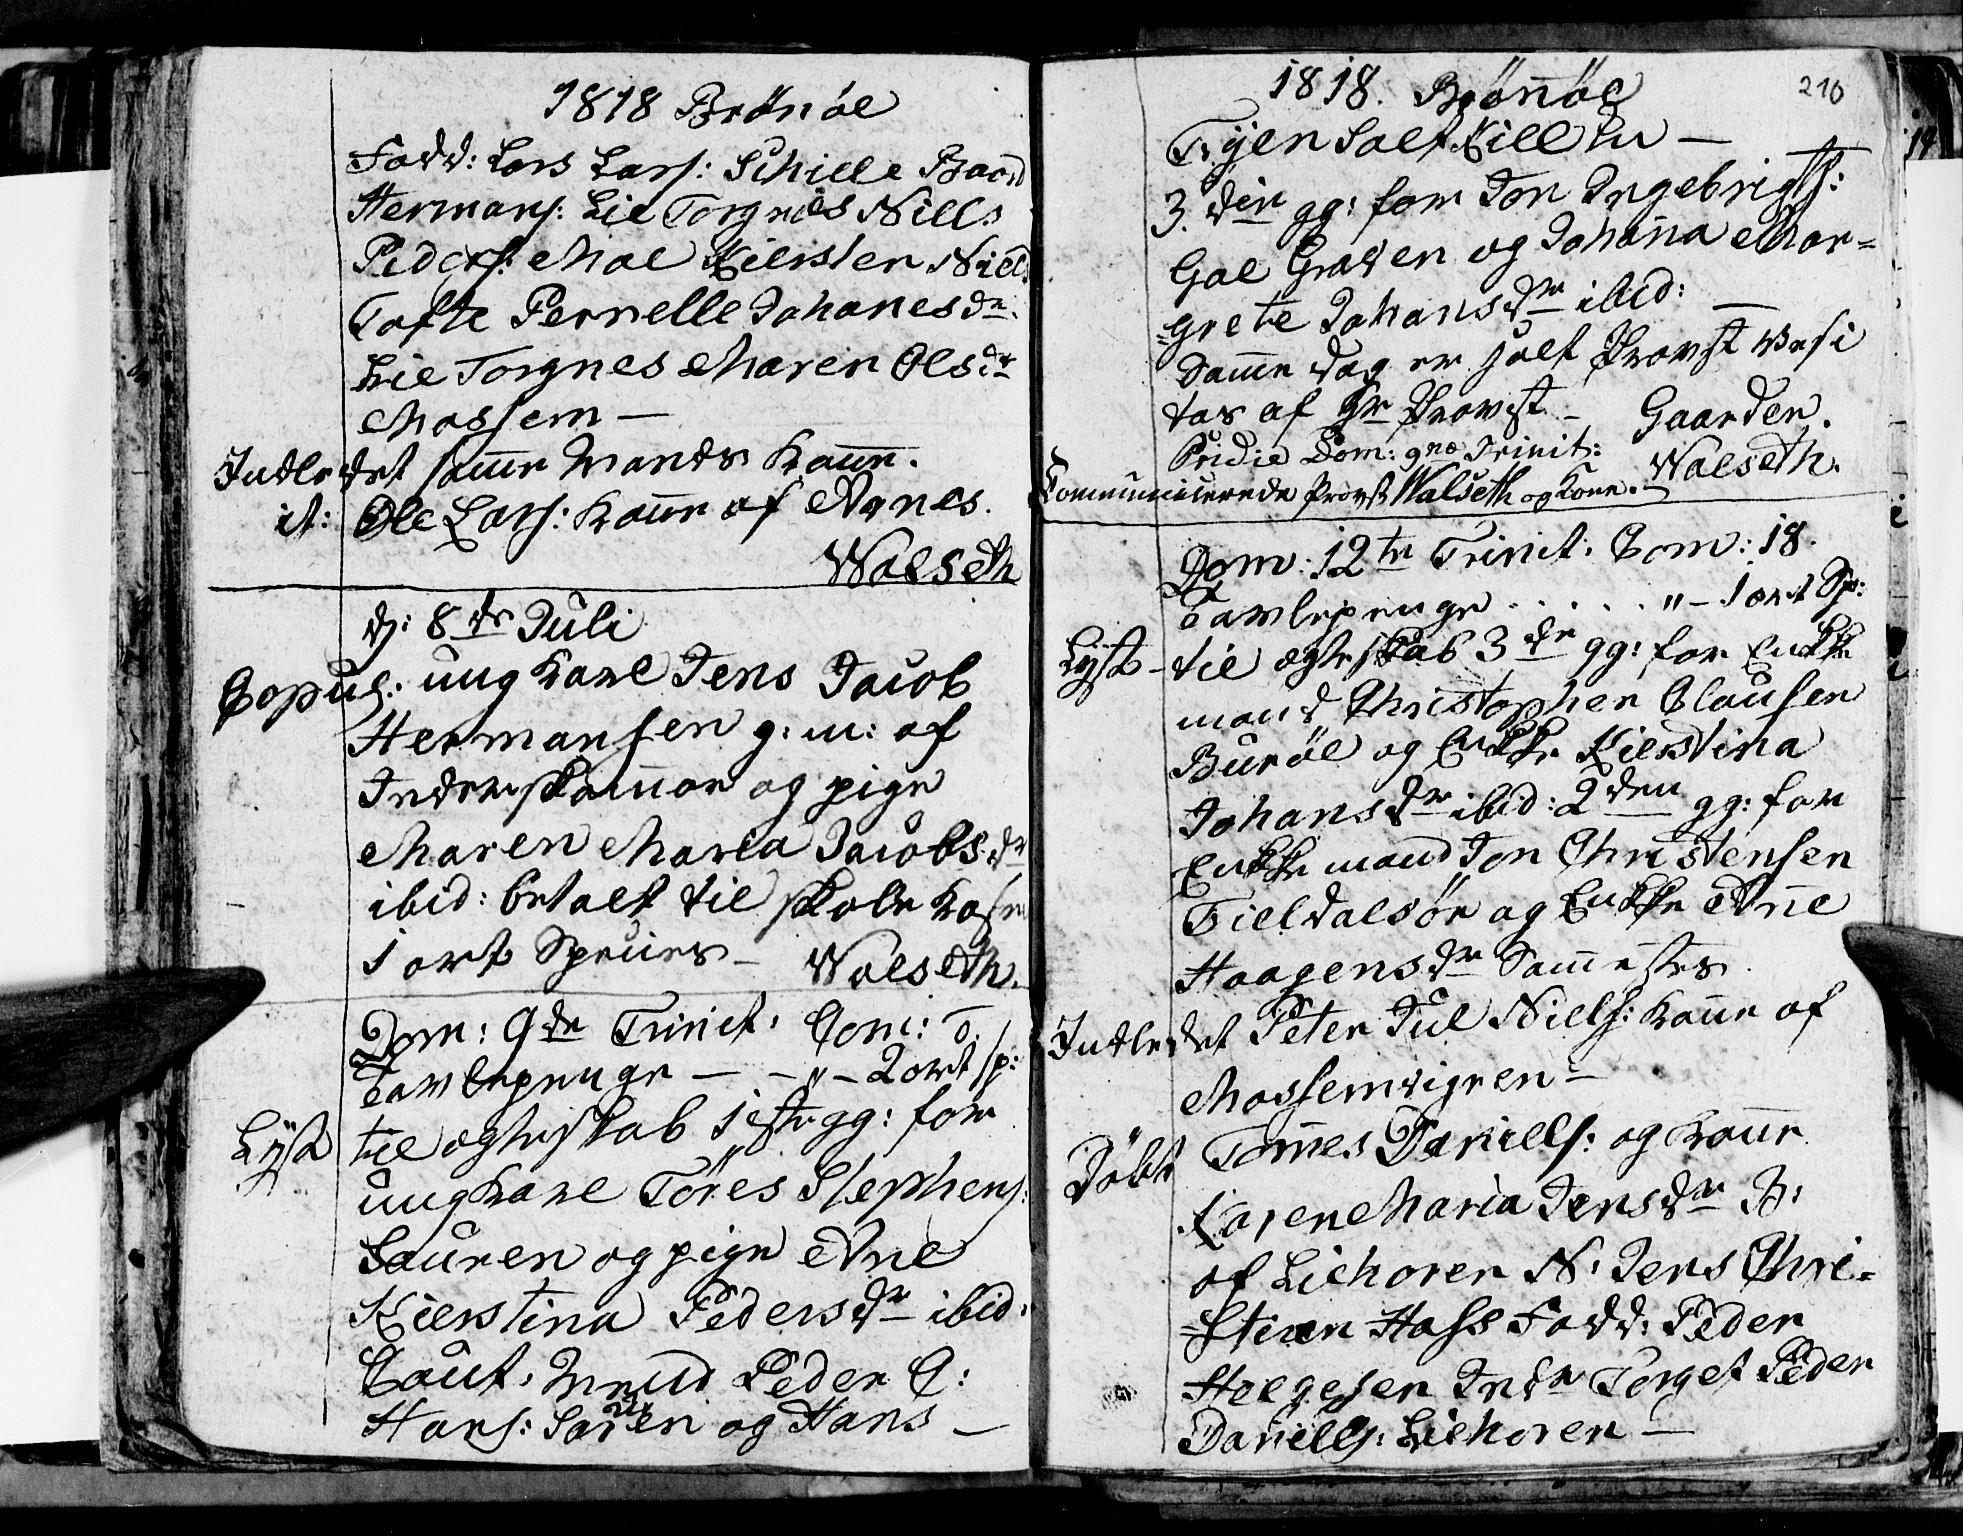 1818 Brönöe
Fadd: Lars Lars: Schille Baard
Hermans: Lie Torgnes Niels
Peders: Moe Kiersten Niels
Tofte Pernelle Johanesdr.
Lie Torgnes Maren Olsdr
Mossem —
Indledet samme Mands Kaane.
it: Ole Lars: Kaane af Agnes.
Walseth
d: 8de Juli
Copul: ung Karl Jens Jacob
Hermansen g: m: af
Inderskamar og pige
Maren Maria Jacobsdr
ibid: betalt til Skole Kassen
1 ort Species — Walseth.
Dom: 9de Trinit: Com: 0.
Tavlepenge — - „ - 2 ort sp:
Lyst til ægteskab 1ste gg: for
ungkarl Töres Stephens:
Sauren og pige Ane
Kierstina Pedersdr ibid:
Caut: Peder C:
Hans: Saren og Hans —
1818. Brönöe 210
Tijen Salt Kill
3. den gg: for Jon Ingebrigts:
Gae Graven og Johana Mar=
=grete Johansdr ibid: —
Samme dag er holt Provst Visi
tas af Hr Provst — Gaarder.
Pridie Dom: 9næ Trinit: Walseth.
Communiserede Provst Walseth og Kone.
Dom: 12te Trinit: Com: 18.
Tavlepenge . . . . . „ - 1 ort Sp:
Lyst - til ægteskab 3de gg: for Enke
mand Christopher Clausen
Buröe og Enke Kierstina
Johansdr ibid: 2den gg: for
Enkemand Jon Christensen
Tieldalsör og Enke Ane
Haagensdr Sammesteds.
Indledet Peter Jul Niels: Kaane af
Mossemvigen —
Döbt Tomes Daniels: og Kaane
Karen Maria Jensdr B:
af Liehoren N: Jens Chri=
=stian Hass Fadd: Peder
Helgesen Indr Torget Peder
Daniels: Liehoren —